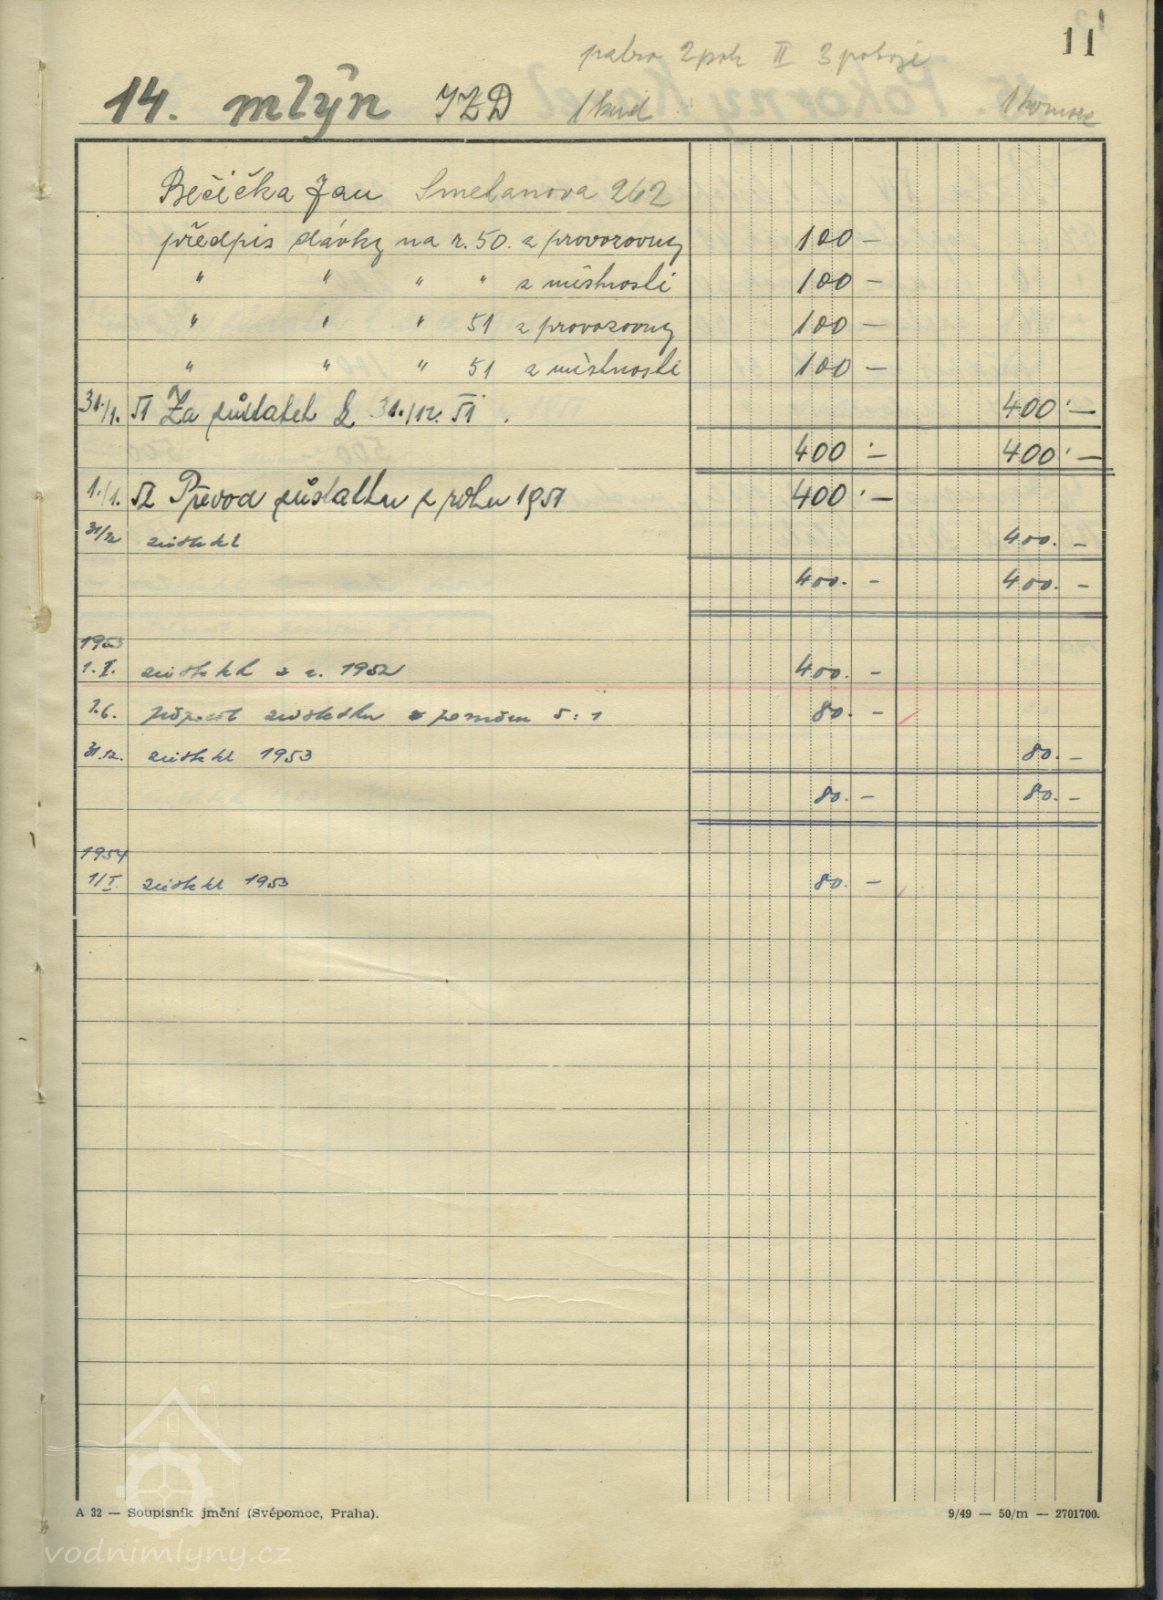 11
patro 2 pok II 3 pokoje
14. mlýn JZD 1 kuch 1 komora
Bečička Jan Smetanova 262
předpis dávky na r. 50. z provozovny 100 —
" " " " z místnosti 100 —
" " " 51 z provozovny 100 —
" " " 51 z místnosti 100 —
31./1. 51 Za zůstatek k 31./12. 51. 400·—
400·— 400·—
1./1. 52 Převod zůstatku z roku 1951 400·—
31/12 zůstatek 400.—
400.— 400.—
1953
1.I. zůstatek z r. 1952 400.—
1.6. přepočet zůstatku v poměru 5:1 80.—
31.12. zůstatek 1953 80.—
80.— 80.—
1954
1/I. zůstatek 1953 80.—
A 32 — Soupisník jmění (Svépomoc, Praha). 9/49 — 50/m — 2701700.
vodnimlyny.cz